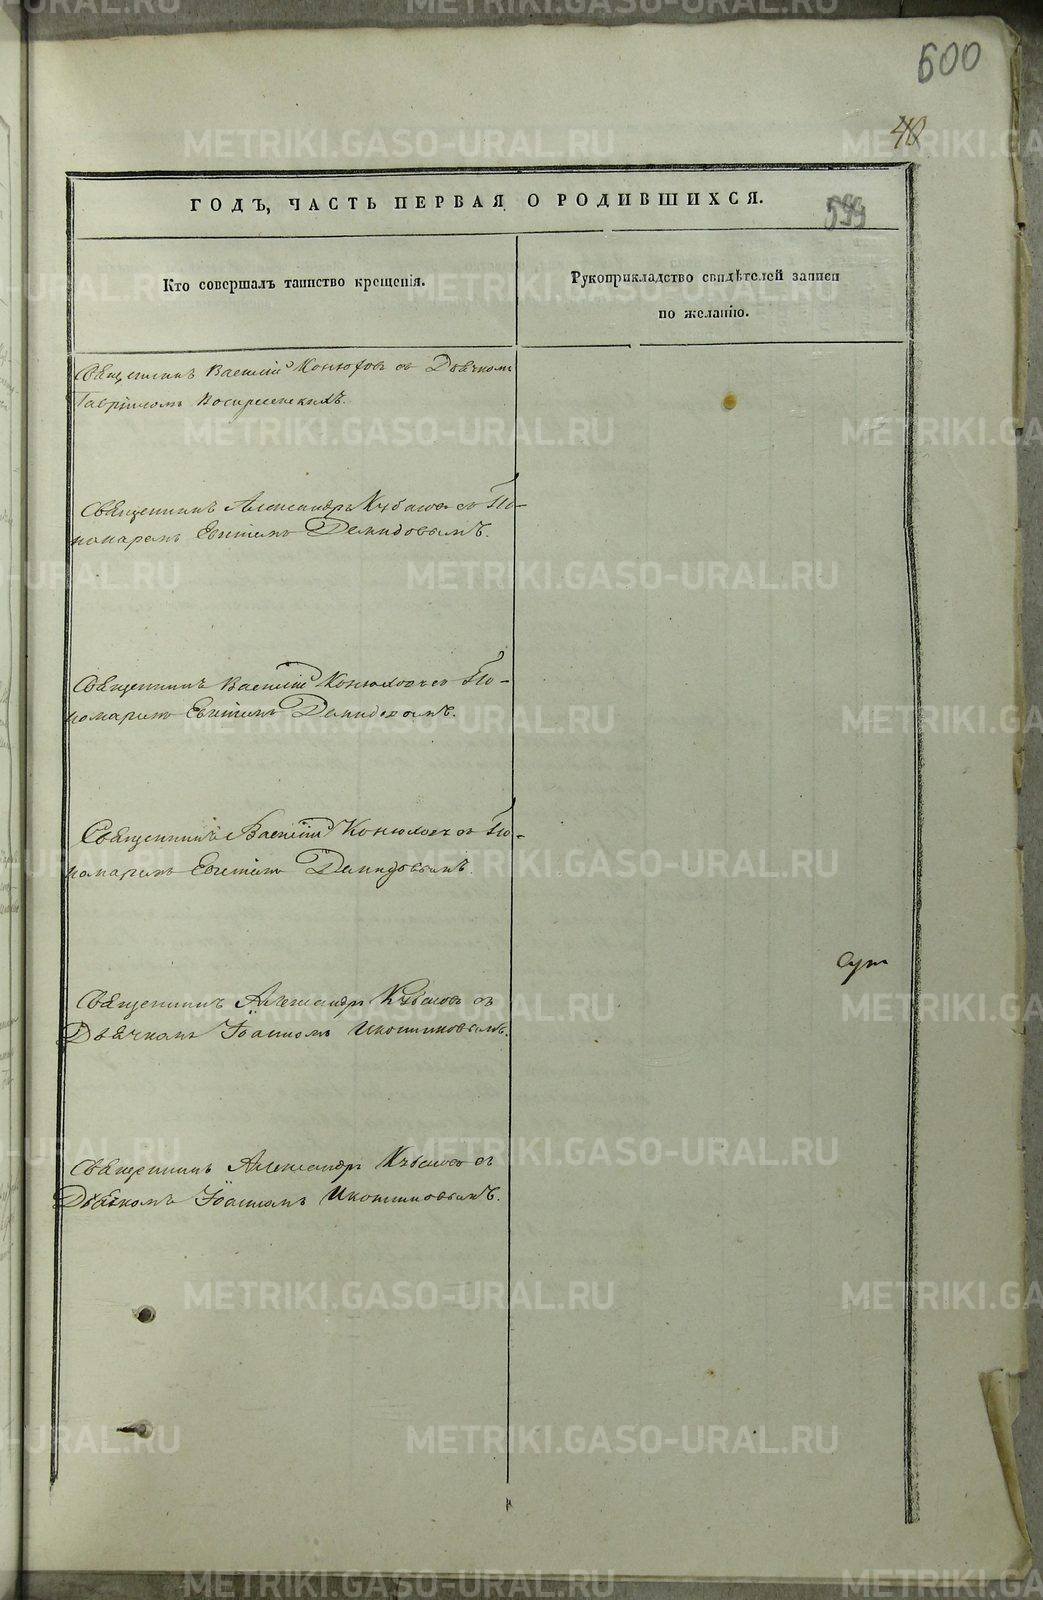 600
40
599
ГОДЪ, ЧАСТЬ ПЕРВАЯ О РОДИВШИХСЯ.
Кто совершалъ таинство крещенія.
Рукоприкладство свидѣтелей записи
по желанію.
Священникъ Василій Конюховъ съ Дьячкомъ
Гавріиломъ Воскресенскимъ.
Священникъ Александръ съ По-
номаремъ Демидовымъ.
Священникъ Василій Конюховъ съ По-
номаремъ Демидовымъ.
Священникъ Василій Конюховъ съ По-
номаремъ Демидовымъ.
Священникъ Александръ съ
Дьячкомъ Іоанномъ Икониковымъ.
Священникъ Александръ съ
Дьячкомъ Іоанномъ Икониковымъ.
METRIKI.GASO-URAL.RU